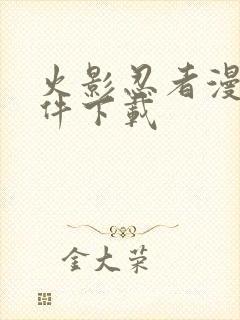 火影忍者漫
件下載
金大荣